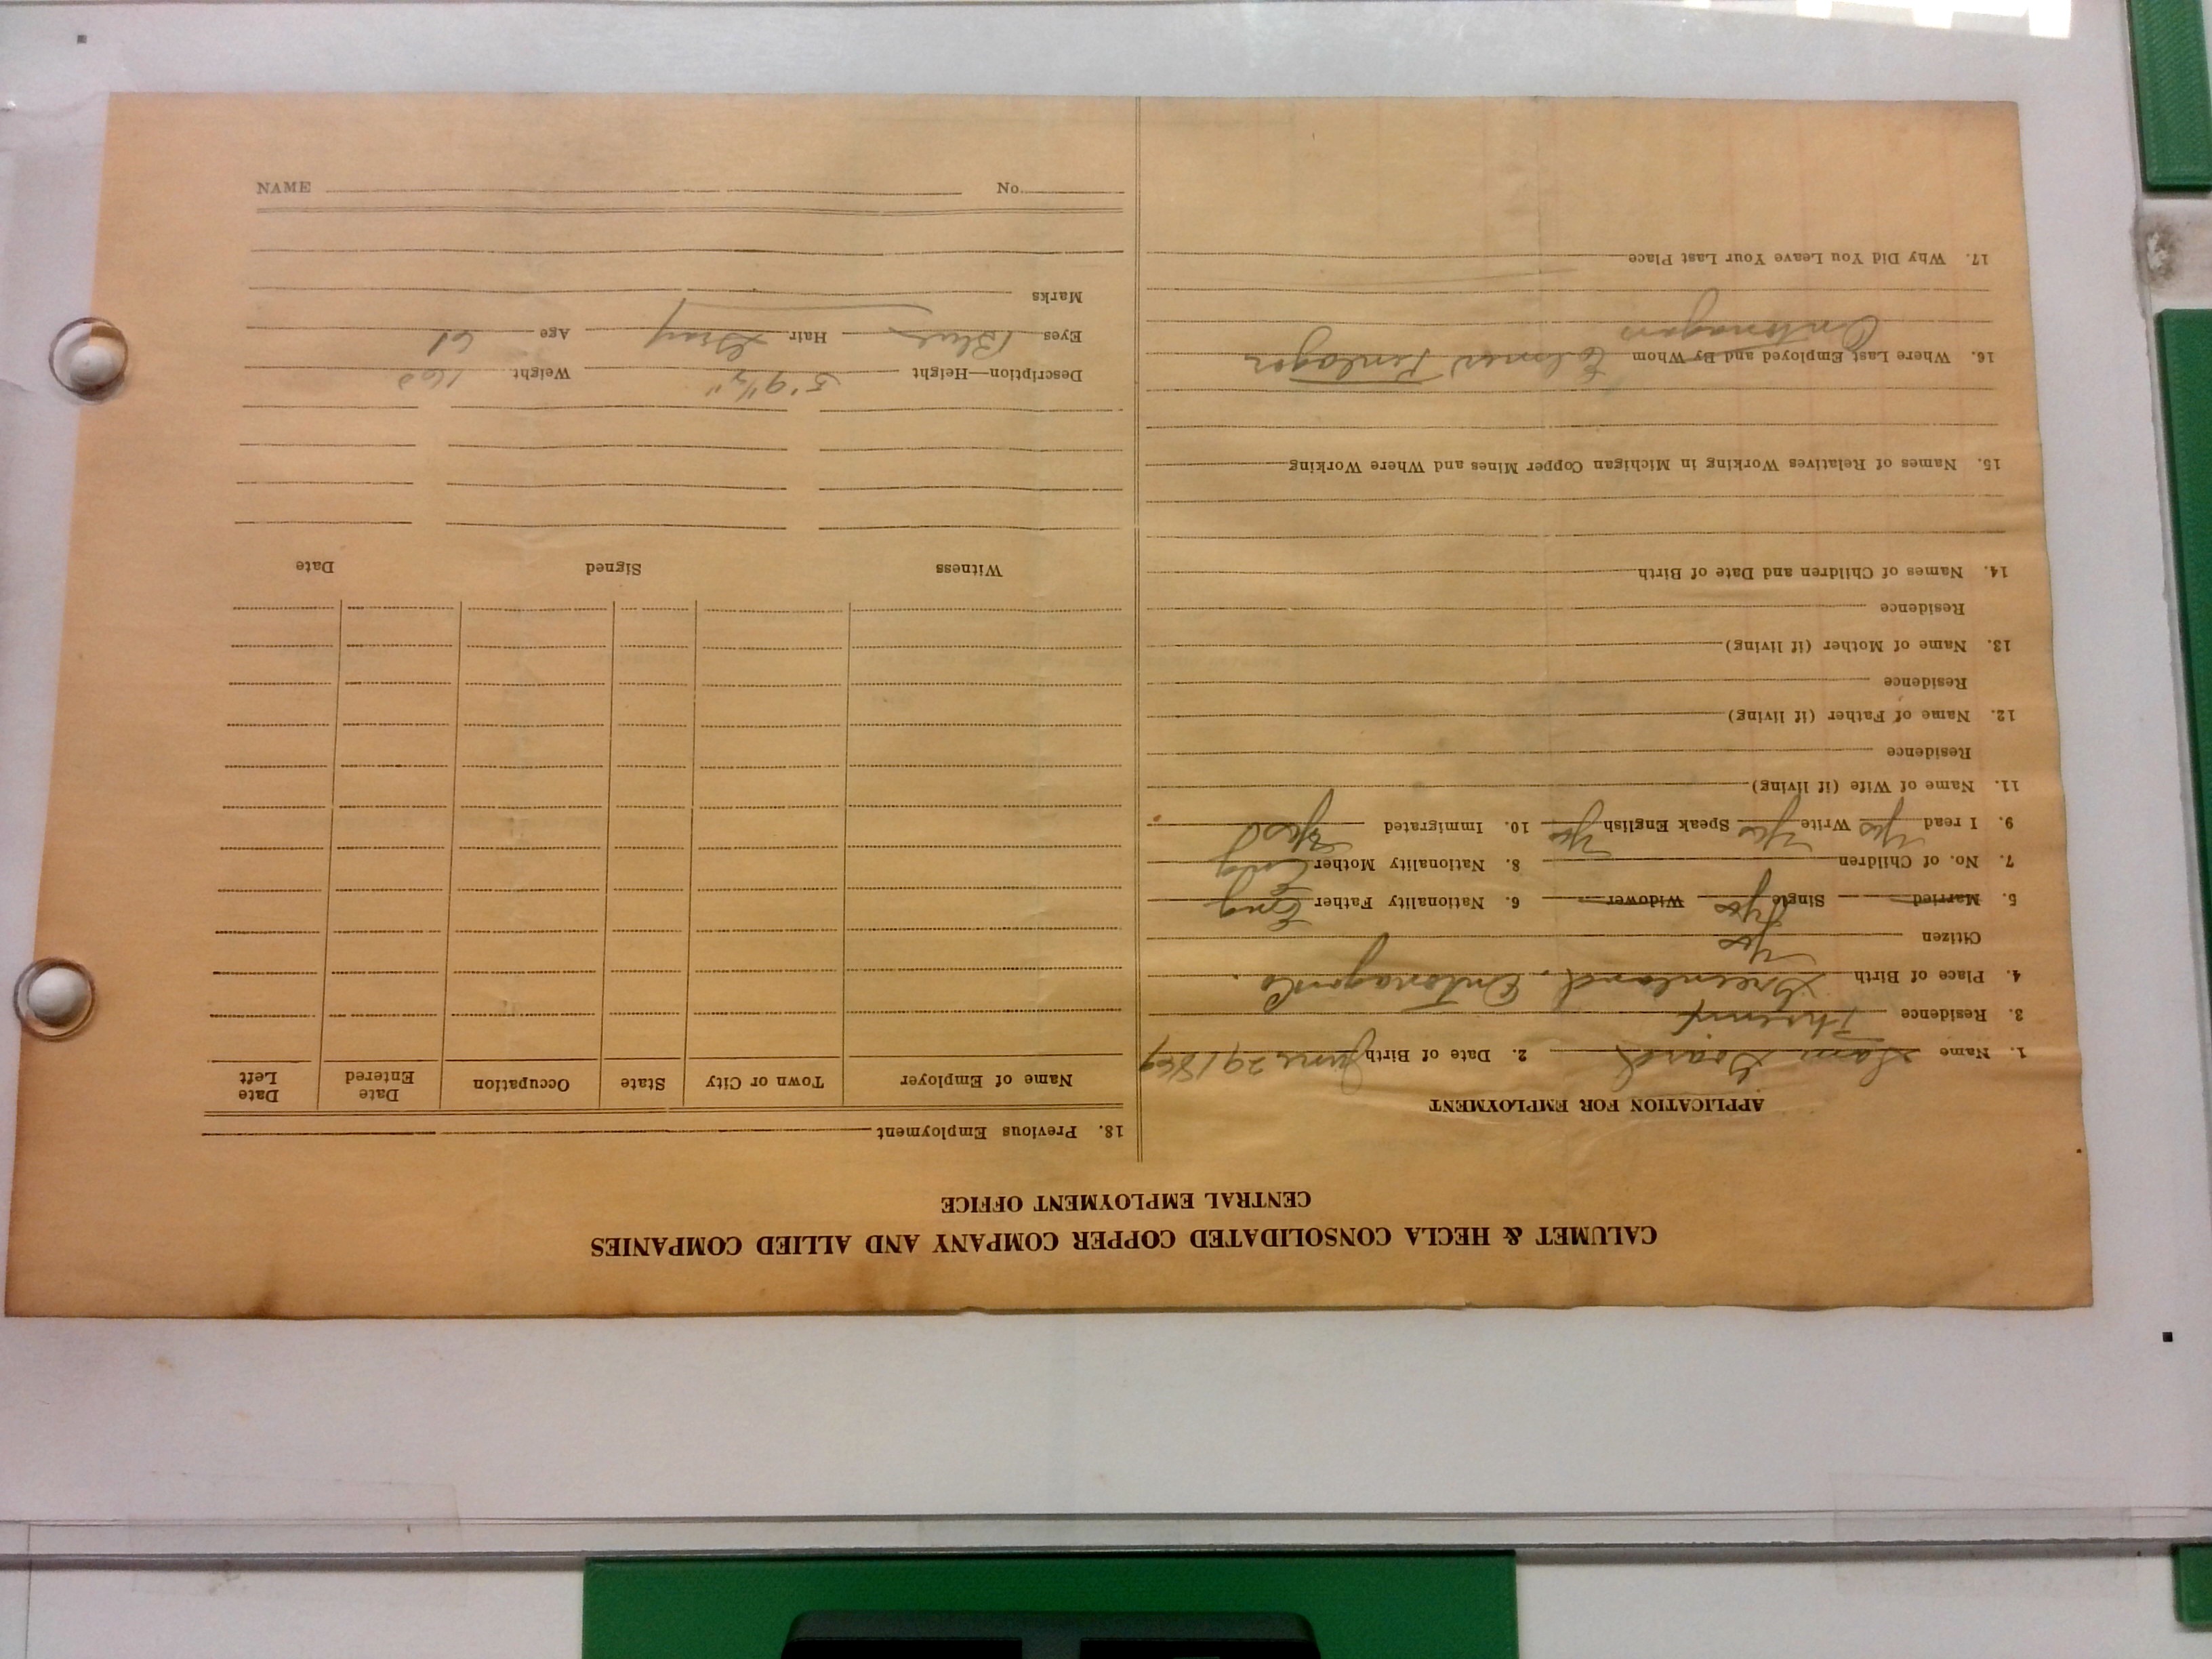 CALUMET & HECLA CONSOLIDATED COPPER COMPANY AND ALLIED COMPANIES
CENTRAL EMPLOYMENT OFFICE
APPLICATION FOR EMPLOYMENT
1. Name Sam Goard 2. Date of Birth June 29 1869
3. Residence
4. Place of Birth Greenland, Ontonagon Co.
Citizen Yes
5. Married Single Yes Widower 6. Nationality Father Eng
7. No. of Children 8. Nationality Mother Eng
9. I read Yes Write Yes Speak English Yes 10. Immigrated
11. Name of Wife (if living)
Residence
12. Name of Father (if living)
Residence
13. Name of Mother (if living)
Residence
14. Names of Children and Date of Birth
15. Names of Relatives Working in Michigan Copper Mines and Where Working
16. Where Last Employed and By Whom Elmer
Ontonagon
17. Why Did You Leave Your Last Place
18. Previous Employment
Name of Employer Town or City State Occupation Date Entered Date Left
Witness Signed Date
Description—Height 5' 9 1/2" Weight 160
Eyes Blue Hair Gray Age 61
Marks
NAME No.